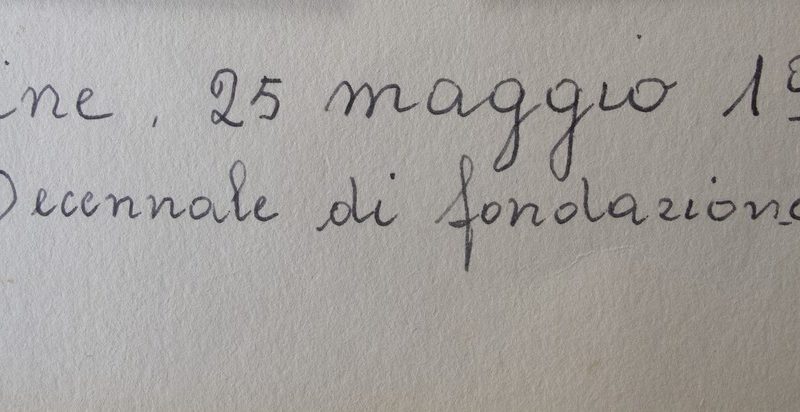 ine, 25 maggio 19
Decennale di fondazione